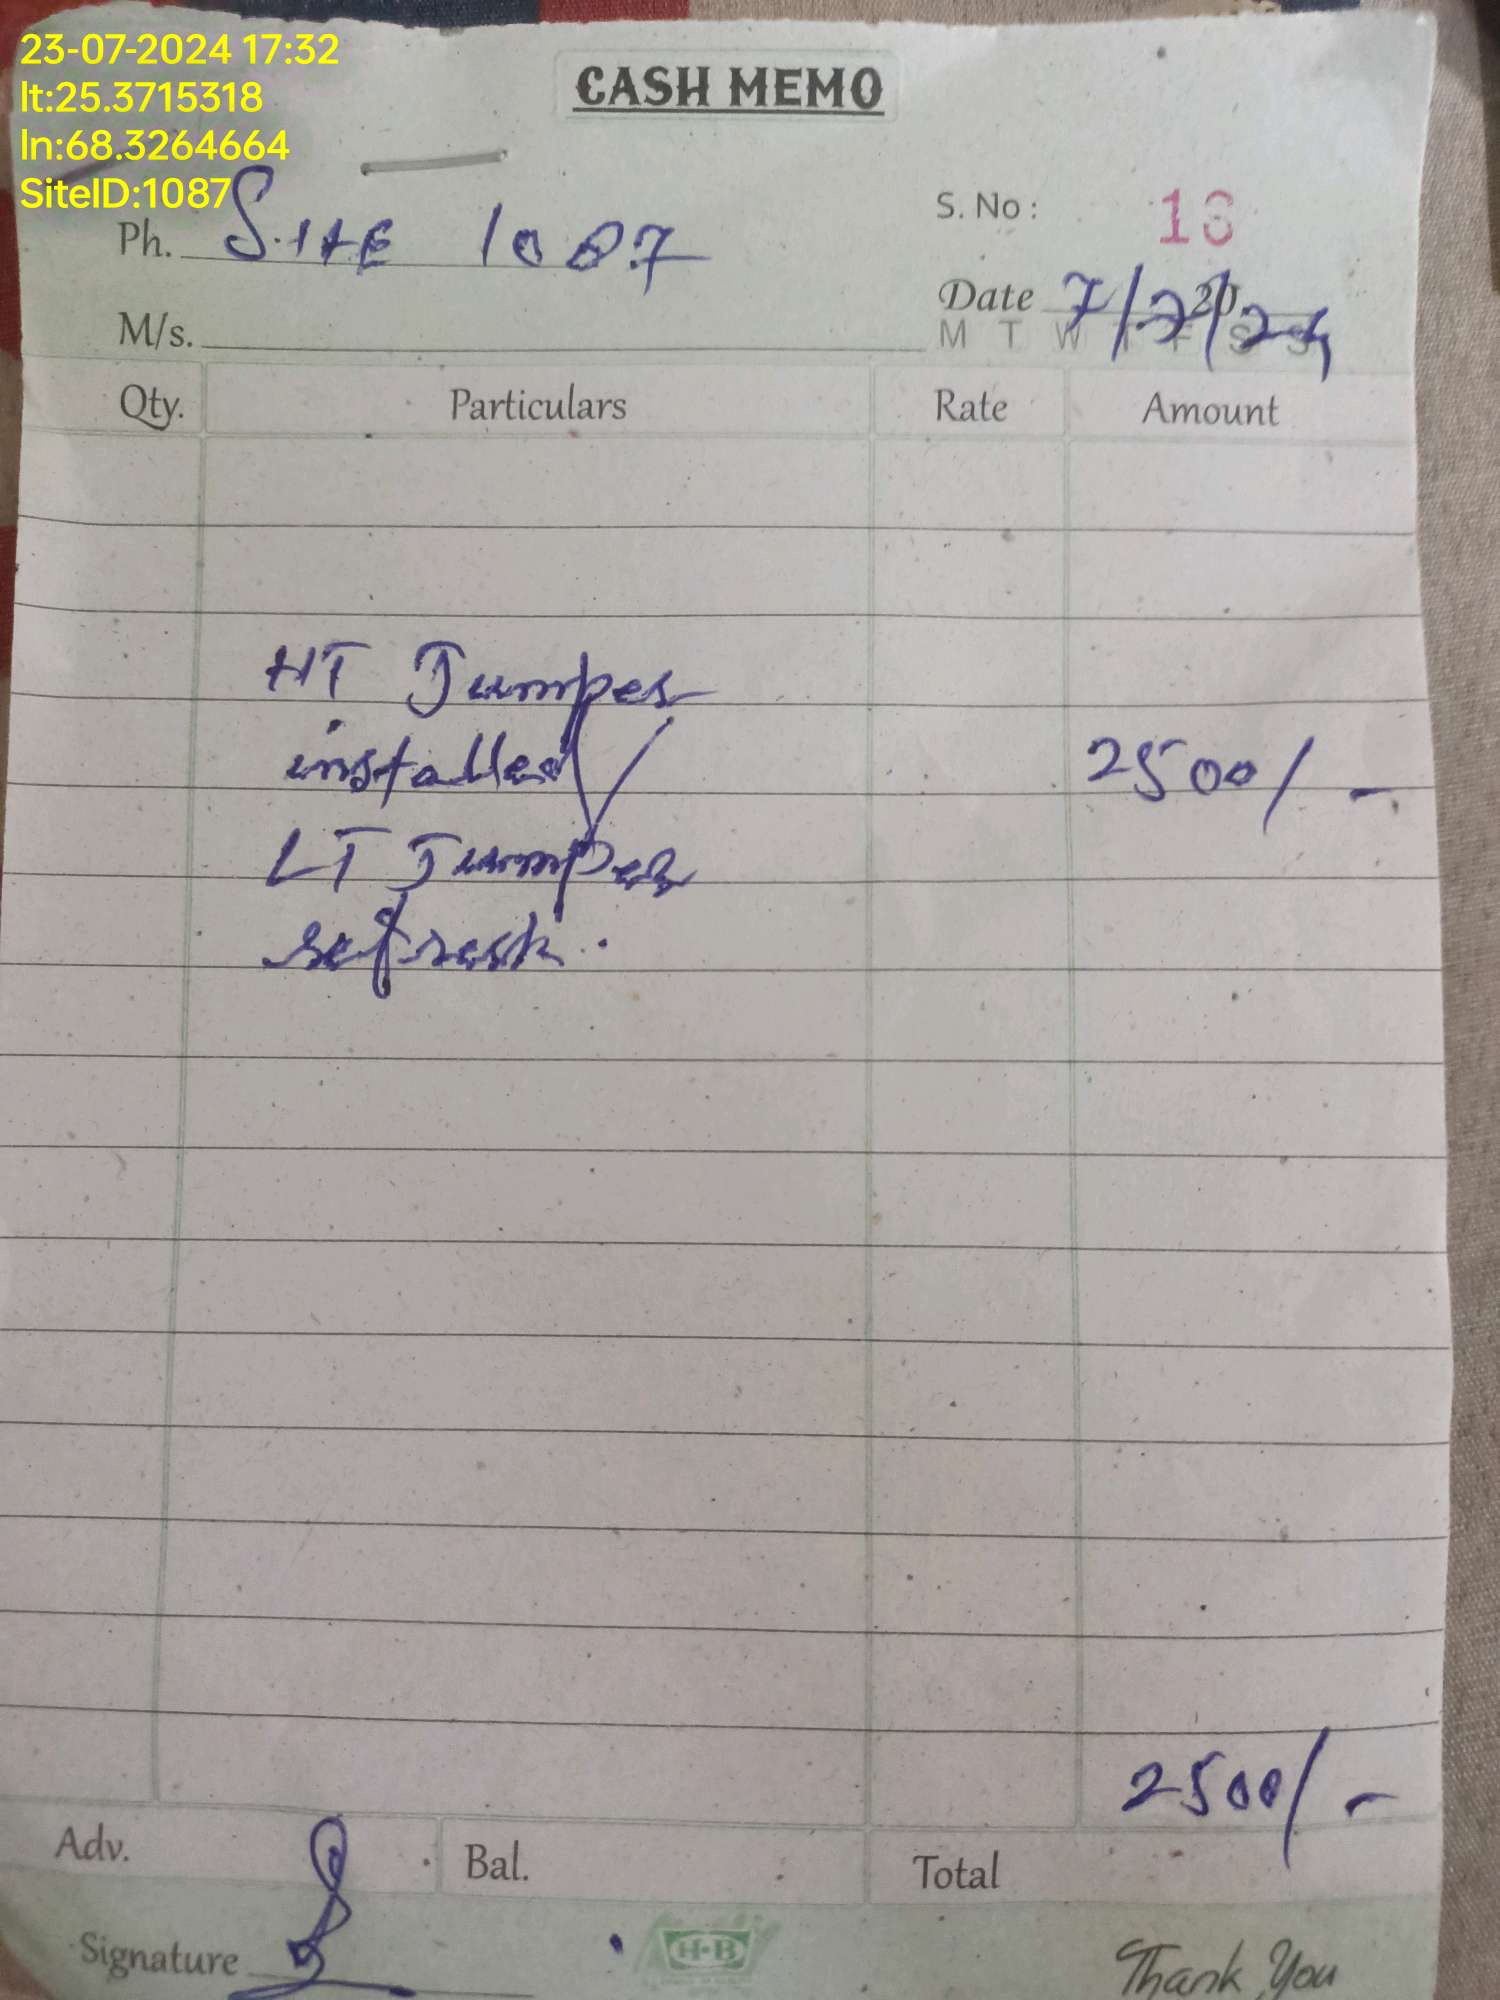 23-07-2024 17:32
lt:25.3715318
ln:68.3264664
SiteID:1087
CASH MEMO
Ph. Site 1087
S. No :
Date 7/7/24
M/s.
M T W T F S S
Qty. Particulars Rate Amount
HT Jumper
installed 2500/-
LT Jumper
refresh.
2500/-
Adv. Bal. Total
Signature
H-B
Thank You